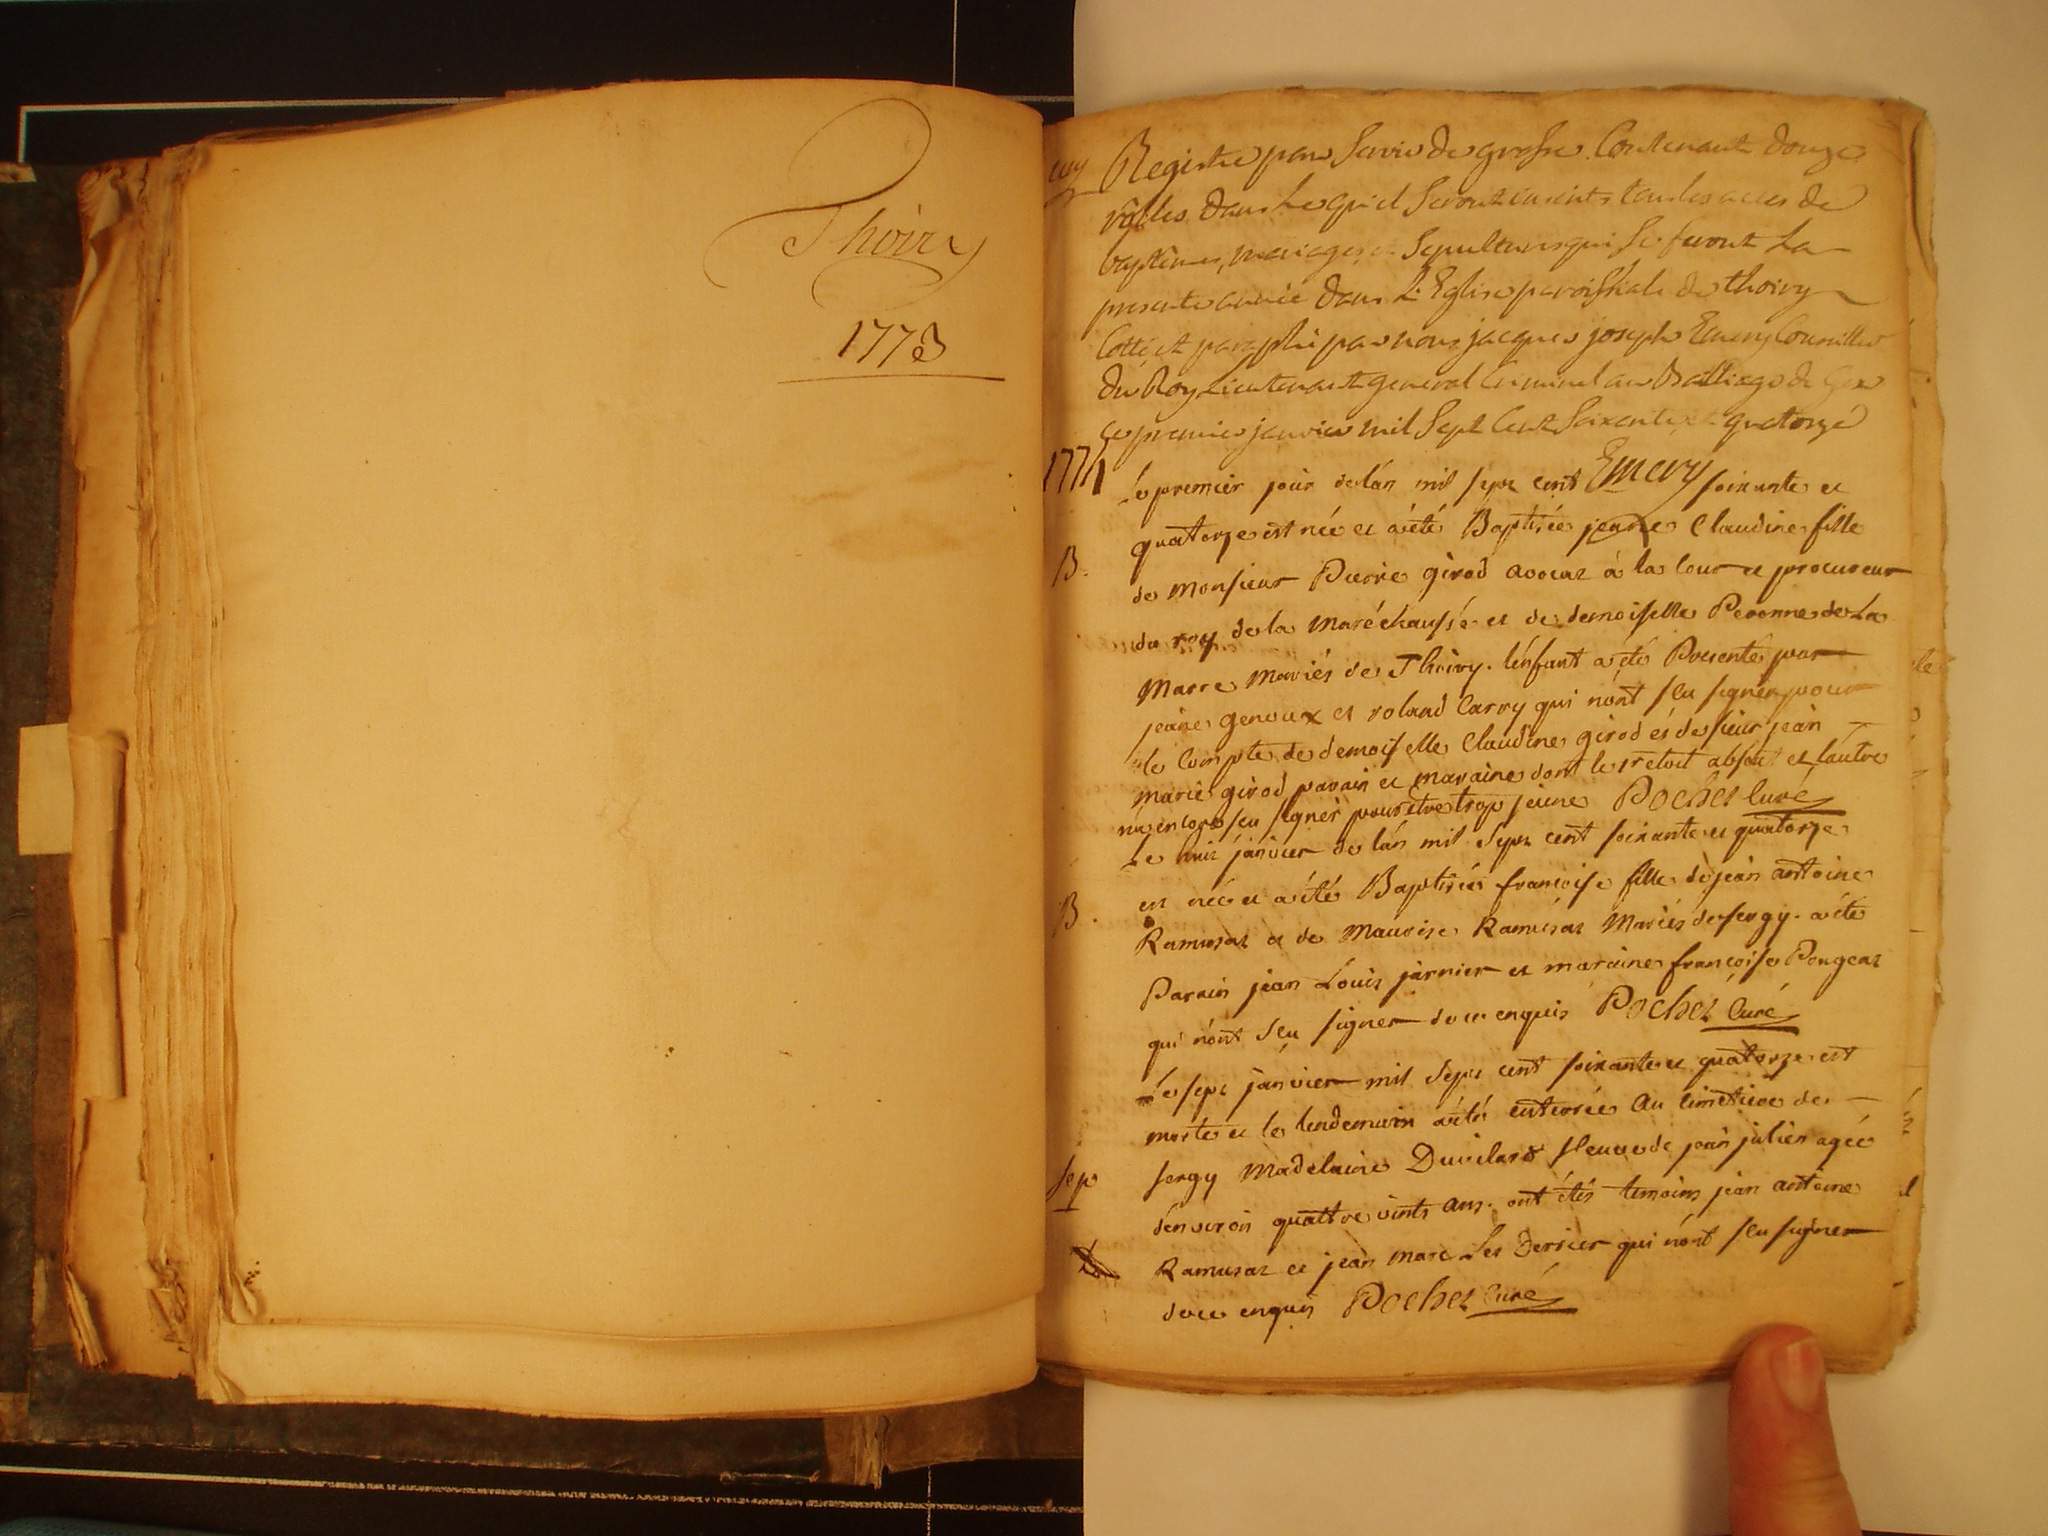 Thoiry
1773
Registre pour servir de grosse contenant douze
rôlles dans lequel seront encrits tous les actes de
baptêmes, mariages, et sepultures qui se feront la
presente année dans L'Eglise paroissiale de thoiry
Cotté et paraphé par nous jacques joseph Emery Conseiller
du Roy Lieutenant general Criminel au Bailliage de Gex
ce premier janvier mil sept cent soixante et quatorze
Emery
1774
Le premier jour de l'an mil sept cent soixante et
quatorze est née et a été Baptisée jeanne Claudine fille
B.
de monsieur Pierre girod avocat à la cour et procureur
du roy de la Maréchaussé et de demoiselle Peronne de La
Marre Mariés de Thoiry. l'enfant a été Presenté par
jeane genoux et roland Carry qui n'ont sçu signer pour
le compte de demoiselle Claudine girod et de sieur jean
marie girod parain et maraine dont le 1r etoit absent et l'autre
n'a encore sçu signer pour etre trop jeune Pochet Curé
Le huit janvier de l'an mil sept cent soixante et quatorze
est née et a été Baptisée françoise fille de jean antoine
B.
Ramusat et de Maurise Ramusat Mariés de sergy. a été
Parain jean Louis jarnier et maraine françoise Pougeat
qui n'ont sçu signer de ce enquis Pochet Curé
Le sept janvier mil sept cent soixante et quatorze est
morte et le lendemain a été enterrée au cimetiere de
sergy Madelaine Duvilard veuve de jean julien agée
sep
d'environ quattre vints ans. ont étés temoins jean antoine
Ramusat et jean marc Les Dernier qui n'ont sçu signer
de ce enquis Pochet Curé